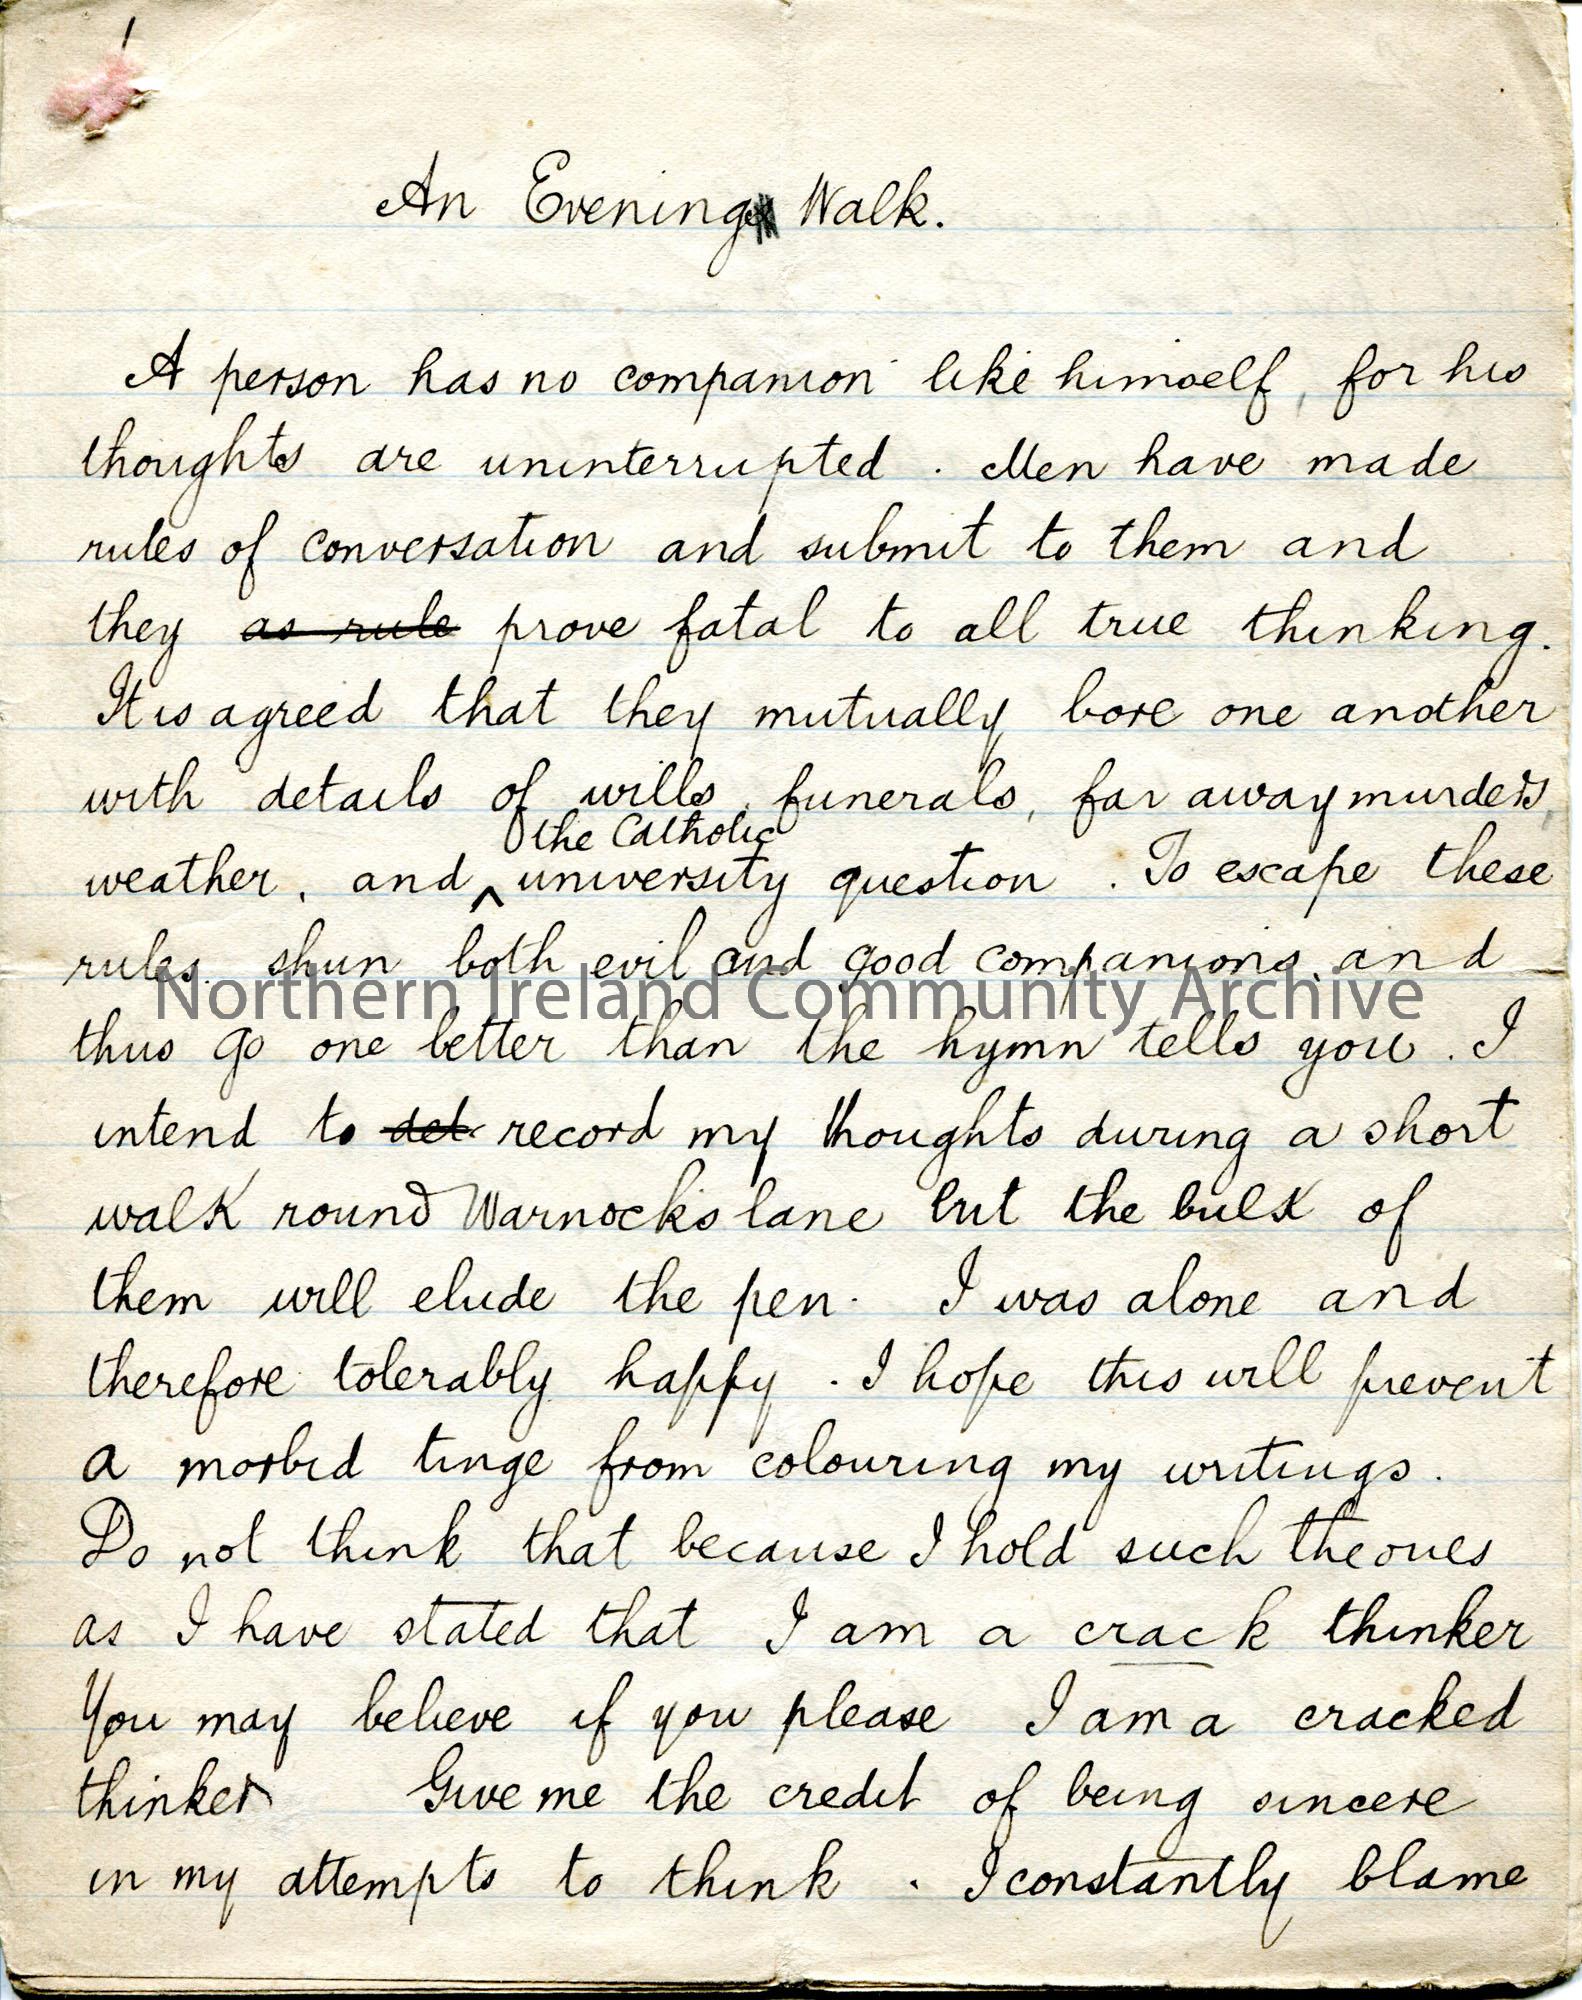 An Evening Walk.
A person has no companion like himself, for his
thoughts are uninterrupted. Men have made
rules of conversation and submit to them and
they as rule prove fatal to all true thinking.
It is agreed that they mutually bore one another
with details of wills, funerals, far away murders,
the Catholic
weather, and ^ university question. To escape these
rules shun both evil and good companions, and
Northern Ireland Community Archive
thus go one better than the hymn tells you. I
intend to det record my thoughts during a short
walk round Warnock's lane but the bulk of
them will elude the pen. I was alone and
therefore tolerably happy. I hope this will prevent
a morbid tinge from colouring my writings.
Do not think that because I hold such theories
as I have stated that I am a crack thinker
You may believe if you please I am a cracked
thinker Give me the credit of being sincere
in my attempts to think. I constantly blame